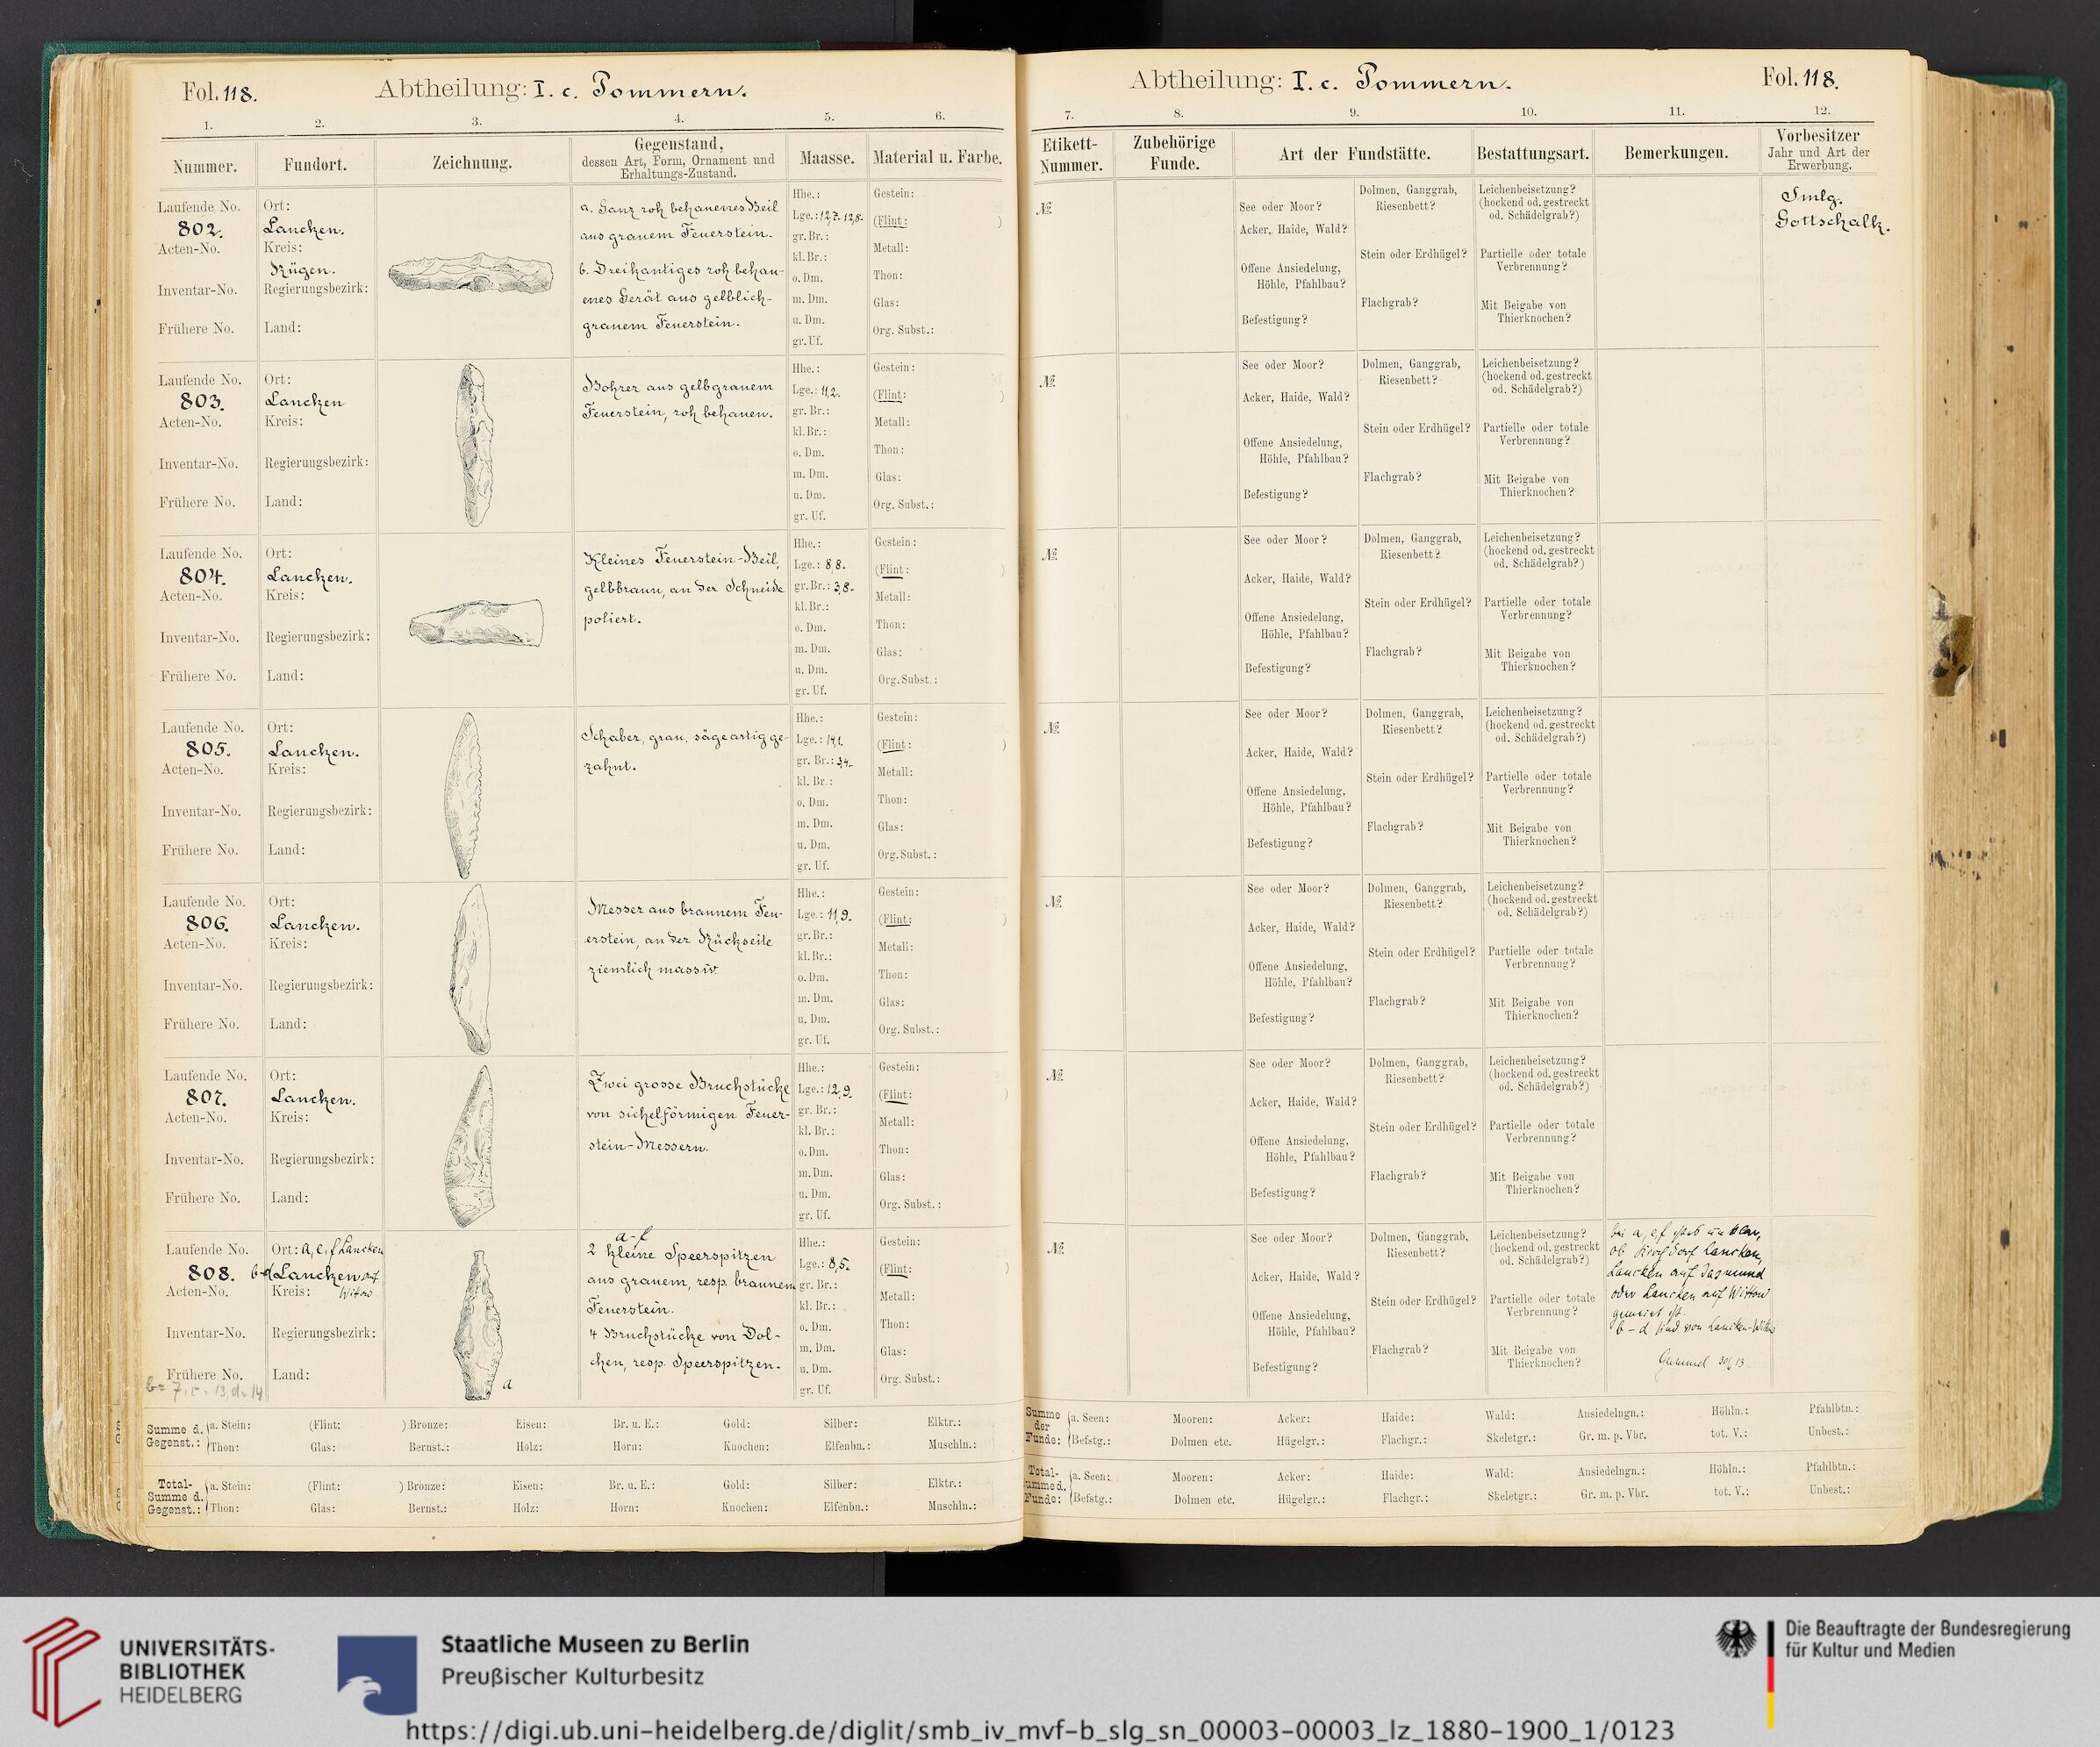 Fol. 118.
Abtheilung: I. c. Pommern.
1. 2. 3. 4. 5. 6.
Nummer.
Fundort.
Zeichnung.
Gegenstand,
dessen Art, Form, Ornament und
Erhaltungs-Zustand.
Maasse.
Material u. Farbe.
Laufende No.
802.
Acten-No.
Inventar-No.
Frühere No.
Ort:
Lancken.
Kreis:
Rügen.
Regierungsbezirk:
Land:
a. Ganz roh behauenes Beil
aus grauem Feuerstein.
b. Dreikantiges roh behau-
enes Gerät aus gelblich-
grauem Feuerstein.
Hhe.:
Lge.: 12,7. 12,8.
gr. Br.:
kl. Br.:
o. Dm.
m. Dm.
u. Dm.
gr. Uf.
Gestein:
(Flint: )
Metall:
Thon:
Glas:
Org. Subst.:
Laufende No.
803.
Acten-No.
Inventar-No.
Frühere No.
Ort:
Lancken
Kreis:
Regierungsbezirk:
Land:
Bohrer aus gelbgrauem
Feuerstein, roh behauen.
Hhe.:
Lge.: 11,2.
gr. Br.:
kl. Br.:
o. Dm.
m. Dm.
u. Dm.
gr. Uf.
Gestein:
(Flint: )
Metall:
Thon:
Glas:
Org. Subst.:
Laufende No.
804.
Acten-No.
Inventar-No.
Frühere No.
Ort:
Lancken.
Kreis:
Regierungsbezirk:
Land:
Kleines Feuerstein-Beil,
gelbbraun, an der Schneide
poliert.
Hhe.:
Lge.: 8,8.
gr. Br.: 3,8.
kl. Br.:
o. Dm.
m. Dm.
u. Dm.
gr. Uf.
Gestein:
(Flint: )
Metall:
Thon:
Glas:
Org. Subst.:
Laufende No.
805.
Acten-No.
Inventar-No.
Frühere No.
Ort:
Lancken.
Kreis:
Regierungsbezirk:
Land:
Schaber, grau, sägeartig ge-
zahnt.
Hhe.:
Lge.: 14,1.
gr. Br.: 3,4.
kl. Br.:
o. Dm.
m. Dm.
u. Dm.
gr. Uf.
Gestein:
(Flint: )
Metall:
Thon:
Glas:
Org. Subst.:
Laufende No.
806.
Acten-No.
Inventar-No.
Frühere No.
Ort:
Lancken.
Kreis:
Regierungsbezirk:
Land:
Messer aus braunem Feu-
erstein, an der Rückseite
ziemlich massiv.
Hhe.:
Lge.: 11,9.
gr. Br.:
kl. Br.:
o. Dm.
m. Dm.
u. Dm.
gr. Uf.
Gestein:
(Flint: )
Metall:
Thon:
Glas:
Org. Subst.:
Laufende No.
807.
Acten-No.
Inventar-No.
Frühere No.
Ort:
Lancken.
Kreis:
Regierungsbezirk:
Land:
Zwei grosse Bruchstücke
von sichelförmigen Feuer-
stein-Messern.
Hhe.:
Lge.: 12,9.
gr. Br.:
kl. Br.:
o. Dm.
m. Dm.
u. Dm.
gr. Uf.
Gestein:
(Flint: )
Metall:
Thon:
Glas:
Org. Subst.:
Laufende No.
808.
Acten-No.
Inventar-No.
Frühere No.
b = 7, c = 13, d = 14
Ort: a, e, f Lancken
b-d Lancken auf
Kreis: Wittow
Regierungsbezirk:
Land:
a
a-f
2 kleine Speerspitzen
aus grauem, resp. braunem
Feuerstein.
4 Bruchstücke von Dol-
chen, resp. Speerspitzen.
Hhe.:
Lge.: 8,5.
gr. Br.:
kl. Br.:
o. Dm.
m. Dm.
u. Dm.
gr. Uf.
Gestein:
(Flint: )
Metall:
Thon:
Glas:
Org. Subst.:
Summe d. Gegenst.:
a. Stein: (Flint: ) Bronze: Eisen: Br. u. E.: Gold: Silber: Elktr.:
Thon: Glas: Bernst.: Holz: Horn: Knochen: Elfenbn.: Muschln.:
Total-Summe d. Gegenst.:
a. Stein: (Flint: ) Bronze: Eisen: Br. u. E.: Gold: Silber: Elktr.:
Thon: Glas: Bernst.: Holz: Horn: Knochen: Elfenbn.: Muschln.:
Abtheilung: I. c. Pommern.
Fol. 118.
7. 8. 9. 10. 11. 12.
Etikett-
Nummer.
Zubehörige
Funde.
Art der Fundstätte.
Bestattungsart.
Bemerkungen.
Vorbesitzer
Jahr und Art der
Erwerbung.
№
See oder Moor?
Acker, Haide, Wald?
Offene Ansiedelung,
Höhle, Pfahlbau?
Befestigung?
Dolmen, Ganggrab,
Riesenbett?
Stein oder Erdhügel?
Flachgrab?
Leichenbeisetzung?
(hockend od. gestreckt
od. Schädelgrab?)
Partielle oder totale
Verbrennung?
Mit Beigabe von
Thierknochen?
Smlg.
Gottschalk.
№
See oder Moor?
Acker, Haide, Wald?
Offene Ansiedelung,
Höhle, Pfahlbau?
Befestigung?
Dolmen, Ganggrab,
Riesenbett?
Stein oder Erdhügel?
Flachgrab?
Leichenbeisetzung?
(hockend od. gestreckt
od. Schädelgrab?)
Partielle oder totale
Verbrennung?
Mit Beigabe von
Thierknochen?
№
See oder Moor?
Acker, Haide, Wald?
Offene Ansiedelung,
Höhle, Pfahlbau?
Befestigung?
Dolmen, Ganggrab,
Riesenbett?
Stein oder Erdhügel?
Flachgrab?
Leichenbeisetzung?
(hockend od. gestreckt
od. Schädelgrab?)
Partielle oder totale
Verbrennung?
Mit Beigabe von
Thierknochen?
№
See oder Moor?
Acker, Haide, Wald?
Offene Ansiedelung,
Höhle, Pfahlbau?
Befestigung?
Dolmen, Ganggrab,
Riesenbett?
Stein oder Erdhügel?
Flachgrab?
Leichenbeisetzung?
(hockend od. gestreckt
od. Schädelgrab?)
Partielle oder totale
Verbrennung?
Mit Beigabe von
Thierknochen?
№
See oder Moor?
Acker, Haide, Wald?
Offene Ansiedelung,
Höhle, Pfahlbau?
Befestigung?
Dolmen, Ganggrab,
Riesenbett?
Stein oder Erdhügel?
Flachgrab?
Leichenbeisetzung?
(hockend od. gestreckt
od. Schädelgrab?)
Partielle oder totale
Verbrennung?
Mit Beigabe von
Thierknochen?
№
See oder Moor?
Acker, Haide, Wald?
Offene Ansiedelung,
Höhle, Pfahlbau?
Befestigung?
Dolmen, Ganggrab,
Riesenbett?
Stein oder Erdhügel?
Flachgrab?
Leichenbeisetzung?
(hockend od. gestreckt
od. Schädelgrab?)
Partielle oder totale
Verbrennung?
Mit Beigabe von
Thierknochen?
№
See oder Moor?
Acker, Haide, Wald?
Offene Ansiedelung,
Höhle, Pfahlbau?
Befestigung?
Dolmen, Ganggrab,
Riesenbett?
Stein oder Erdhügel?
Flachgrab?
Leichenbeisetzung?
(hockend od. gestreckt
od. Schädelgrab?)
Partielle oder totale
Verbrennung?
Mit Beigabe von
Thierknochen?
bei a, e, f ist es unklar,
ob Kirchdorf Lancken,
Lancken auf Jasmund
oder Lancken auf Wittow
gemeint ist.
b – d sind von Lancken-Wittow
Summe der Funde:
a. Seen: Mooren: Acker: Haide: Wald: Ansiedelngn.: Höhln.: Pfahlbtn.:
Befstg.: Dolmen etc. Hügelgr.: Flachgr.: Skeletgr.: Gr. m. p. Vbr. tot. V.: Unbest.:
Total-
summe d.
Funde:
a. Seen: Mooren: Acker: Haide: Wald: Ansiedelngn.: Höhln.: Pfahlbtn.:
Befstg.: Dolmen etc. Hügelgr.: Flachgr.: Skeletgr.: Gr. m. p. Vbr. tot. V.: Unbest.:
UNIVERSITÄTS-
BIBLIOTHEK
HEIDELBERG
Staatliche Museen zu Berlin
Preußischer Kulturbesitz
Die Beauftragte der Bundesregierung
für Kultur und Medien
https://digi.ub.uni-heidelberg.de/diglit/smb_iv_mvf-b_slg_sn_00003-00003_lz_1880-1900_1/0123